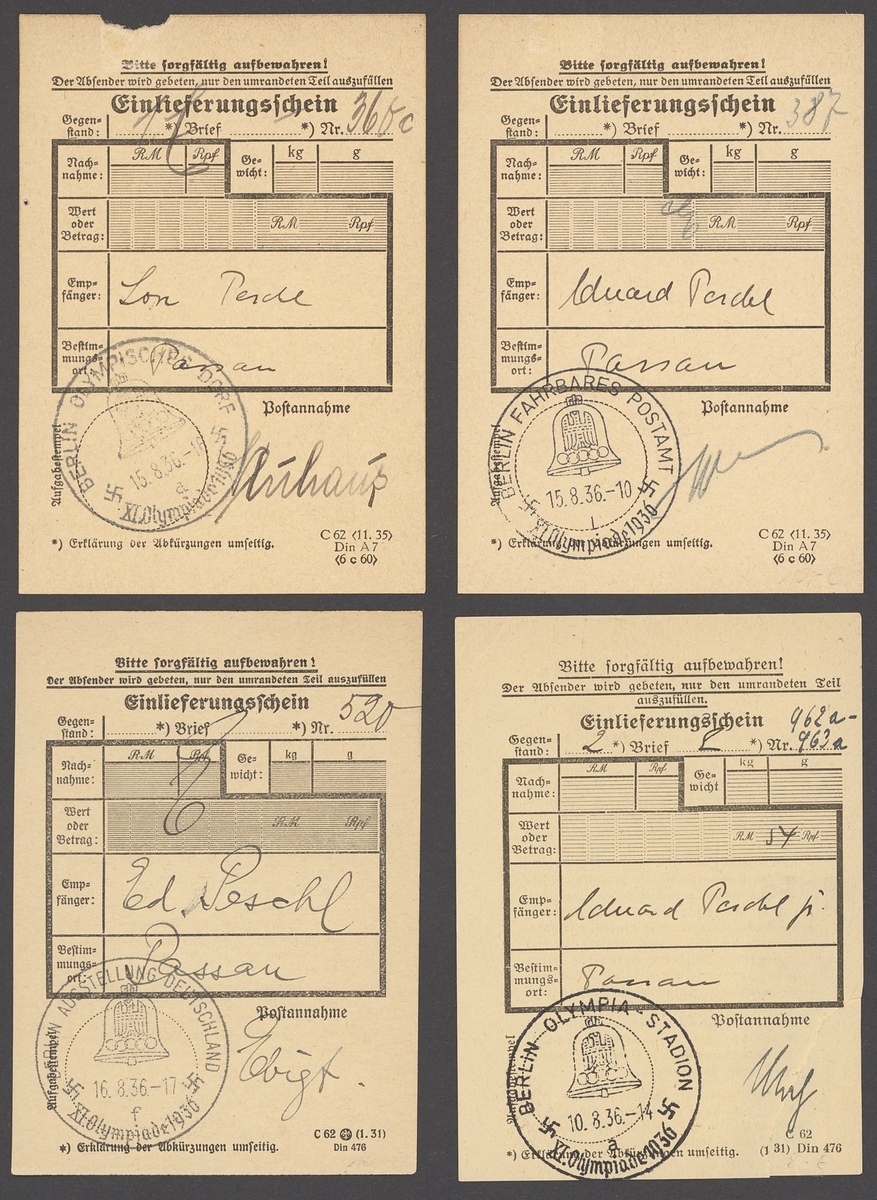 Bitte sorgfältig aufbewahren!
Der Absender wird gebeten, nur den umrandeten Teil auszufüllen
Einlieferungsschein
Gegen-
stand: *) Brief *) Nr. 360c
RM Rpf kg g
Nach-
nahme:
Ge-
wicht:
Wert
oder
Betrag:
RM Rpf
Emp-
fänger:
Bestim-
mungs-
ort: Passau
Postannahme
Aufgabestempel
BERLIN OLYMPISCHES DORF
15.8.36.-
a
XI. Olympiade 1936
*) Erklärung der Abkürzungen umseitig.
C 62 (11. 35)
Din A7
(6 c 60)
Bitte sorgfältig aufbewahren!
Der Absender wird gebeten, nur den umrandeten Teil auszufüllen
Einlieferungsschein
Gegen-
stand: *) Brief *) Nr. 387
RM Rpf kg g
Nach-
nahme:
Ge-
wicht:
Wert
oder
Betrag:
RM Rpf
Emp-
fänger: Eduard Peschl
Bestim-
mungs-
ort: Passau
Postannahme
Aufgabestempel
BERLIN FAHRBARES POSTAMT
15.8.36.-10
XI. Olympiade 1936
*) Erklärung der Abkürzungen umseitig.
C 62 (11. 35)
Din A7
(6 c 60)
Bitte sorgfältig aufbewahren!
Der Absender wird gebeten, nur den umrandeten Teil auszufüllen
Einlieferungsschein
Gegen-
stand: *) Brief *) Nr. 520
RM Rpf kg g
Nach-
nahme:
Ge-
wicht:
Wert
oder
Betrag:
RM Rpf
Emp-
fänger: Ed. Peschl
Bestim-
mungs-
ort: Passau
Postannahme
Aufgabestempel
BERLIN AUSSTELLUNG DEUTSCHLAND
16.8.36.-17
f
XI. Olympiade 1936
*) Erklärung der Abkürzungen umseitig.
C 62 (1. 31)
Din 476
Bitte sorgfältig aufbewahren!
Der Absender wird gebeten, nur den umrandeten Teil
auszufüllen.
Einlieferungsschein
962a-
Gegen-
stand: 2 *) Brief *) Nr. 963a
RM Rpf kg g
Nach-
nahme:
Ge-
wicht
Wert
oder
Betrag:
RM 54 Rpf
Emp-
fänger: Eduard Peschl jr.
Bestim-
mungs-
ort: Passau
Postannahme
Aufgabestempel
BERLIN OLYMPIA-STADION
10.8.36.-14
a
XI. Olympiade 1936
*) Erklärung der Abkürzungen umseitig.
C 62
(1 31) Din 476